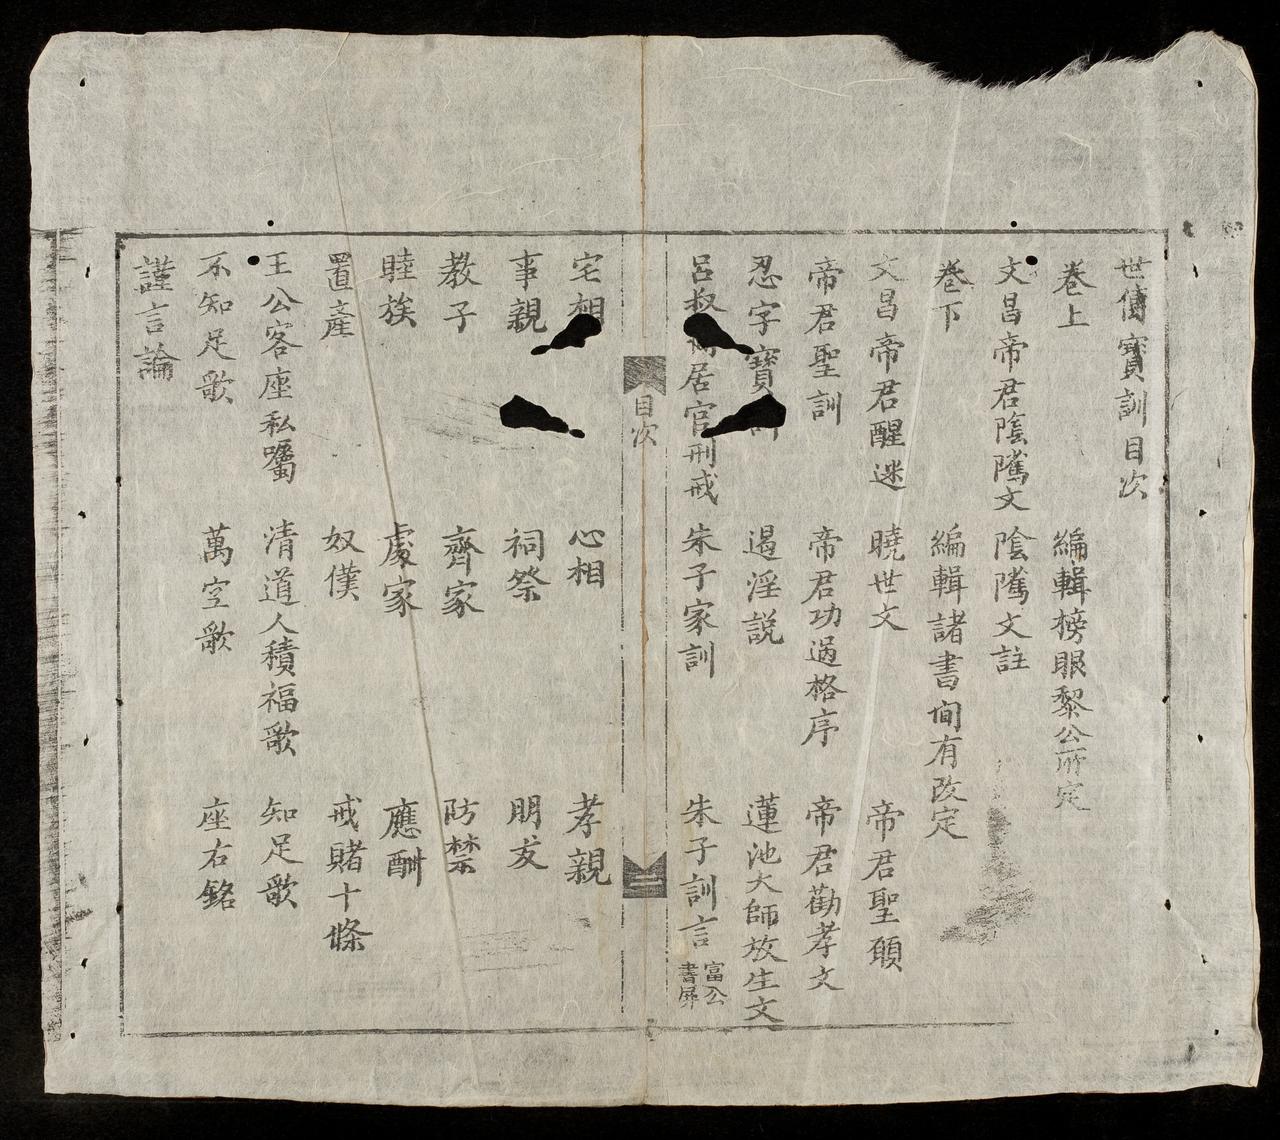 世傳寶訓目次
卷上 編輯榜眼黎公所定
文昌帝君陰隲文 陰隲文註
卷下 編輯諸書間有改定
文昌帝君醒迷 曉世文 帝君聖願
帝君聖訓 帝君功過格序 帝君勸孝文
忍字寶訓 遏淫説 蓮池大師放生文
呂叔 居官刑戒 朱子家訓 朱子訓言 富公書屏
目次
二
宅相 心相 孝親
事親 祠祭 朋友
教子 齊家 防禁
睦族 處家 應酬
置產 奴僕 戒賭十條
王公客座私囑 清道人積福歌 知足歌
不知足歌 萬空歌 座右銘
謹言論